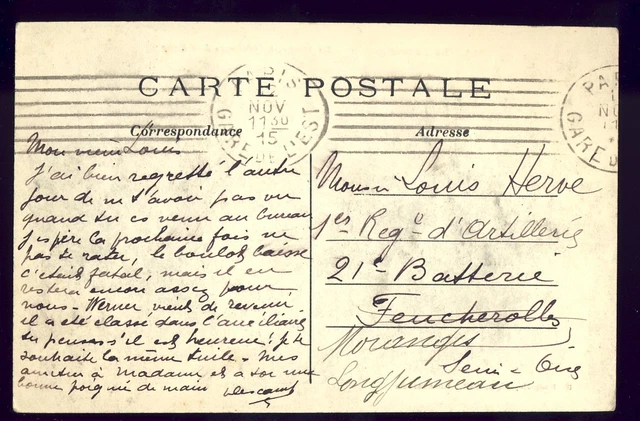 CARTE POSTALE
PARIS
NOV
1130
15
GARE DE L'EST
PAR
NO
GARE D
Correspondance
Adresse
Mon vieux Louis
J'ai bien regretté l'autre
jour de ne t'avoir pas vu
quand tu es venu au bureau
J'espère la prochaine fois ne
pas te rater, le boulot baisse
c'était fatal, mais il en
restera encore assez pour
nous. Werner vient de revenir
il a été classé dans l'auxiliaire
tu penses s'il est heureux! Je te
souhaite la même tuile. Mes
amitiés à Madame et à toi une
bonne poignée de main
Louis Herve
1er Reg d'Artillerie
21e Batterie
Feucherolles
Morangis
Seine-Oise
Longjumeau